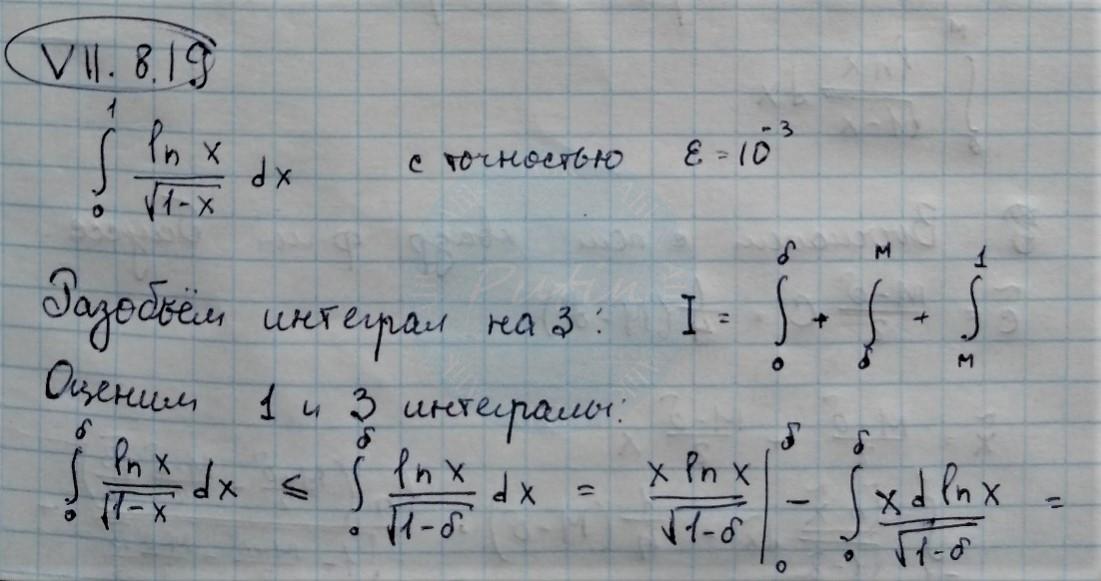 VII. 8.19
∫₀¹ ln x / √(1-x) dx с точностью ε = 10⁻³
Разобьём интеграл на 3: I = ∫₀^δ + ∫_δ^M + ∫_M^1
Оценим 1 и 3 интегралы:
∫₀^δ ln x / √(1-x) dx ≤ ∫₀^δ ln x / √(1-δ) dx = x ln x / √(1-δ) |₀^δ - ∫₀^δ x d ln x / √(1-δ) =